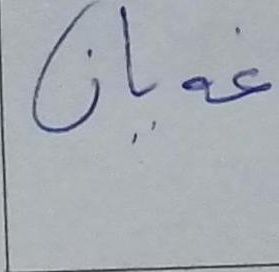 غه يان